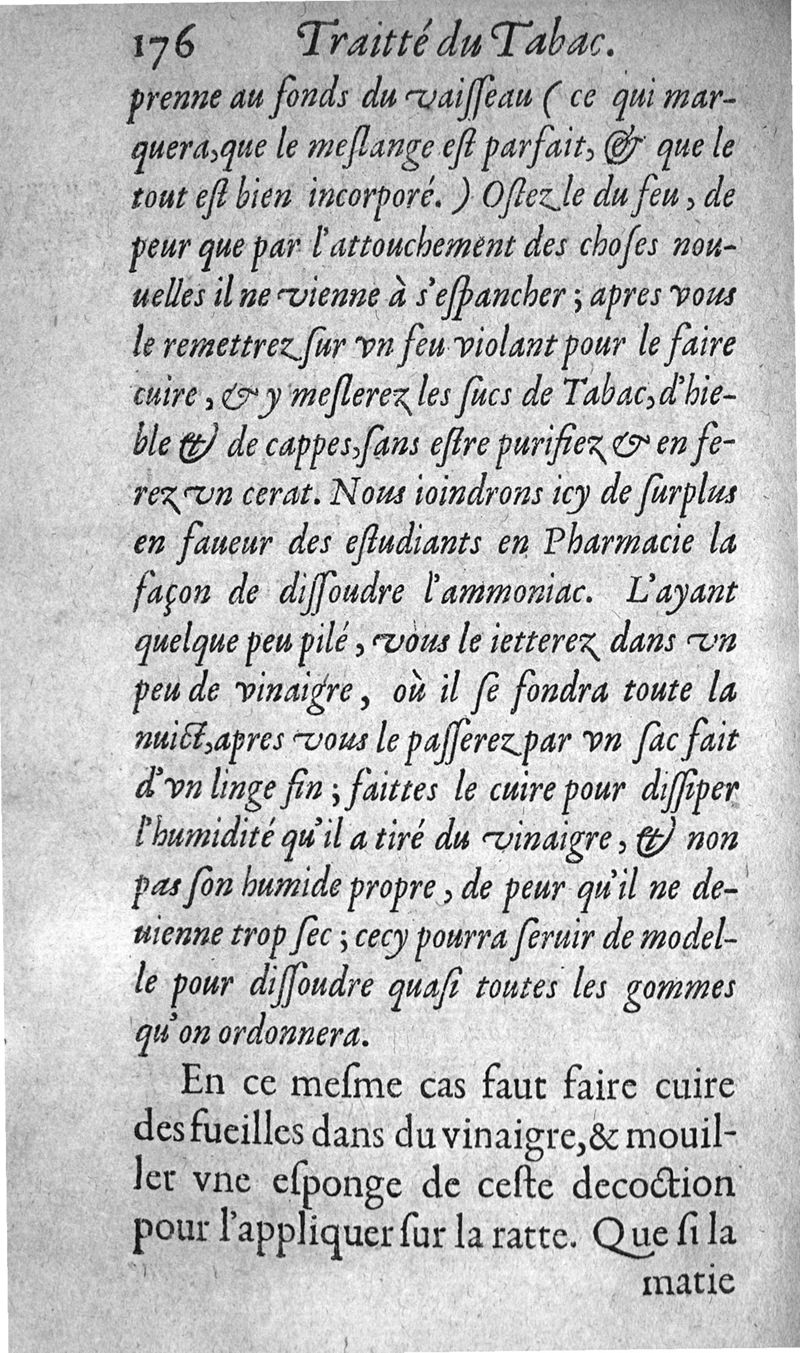 176 Traitté du Tabac.
prenne au fonds du vaiſſeau ( ce qui mar-
quera, que le meſlange eſt parfait, & que le
tout eſt bien incorporé. ) Oſtez le du feu, de
peur que par l'attouchement des choſes nou-
uelles il ne vienne à s'eſpancher ; apres vous
le remettrez ſur vn feu violant pour le faire
cuire, & y meſlerez les ſucs de Tabac, d'hie-
ble & de cappes, ſans eſtre purifiez & en fe-
rez vn cerat. Nous ioindrons icy de ſurplus
en faueur des eſtudiants en Pharmacie la
façon de diſſoudre l'ammoniac. L'ayant
quelque peu pilé, vous le ietterez dans vn
peu de vinaigre, où il ſe fondra toute la
nuict, apres vous le paſſerez par vn ſac fait
d'vn linge fin ; faittes le cuire pour diſſiper
l'humidité qu'il a tiré du vinaigre, & non
pas ſon humide propre, de peur qu'il ne de-
uienne trop ſec ; cecy pourra ſeruir de model-
le pour diſſoudre quaſi toutes les gommes
qu'on ordonnera.
En ce meſme cas faut faire cuire
des fueilles dans du vinaigre, & mouil-
ler vne eſponge de ceſte decoction
pour l'appliquer ſur la ratte. Que ſi la
matie